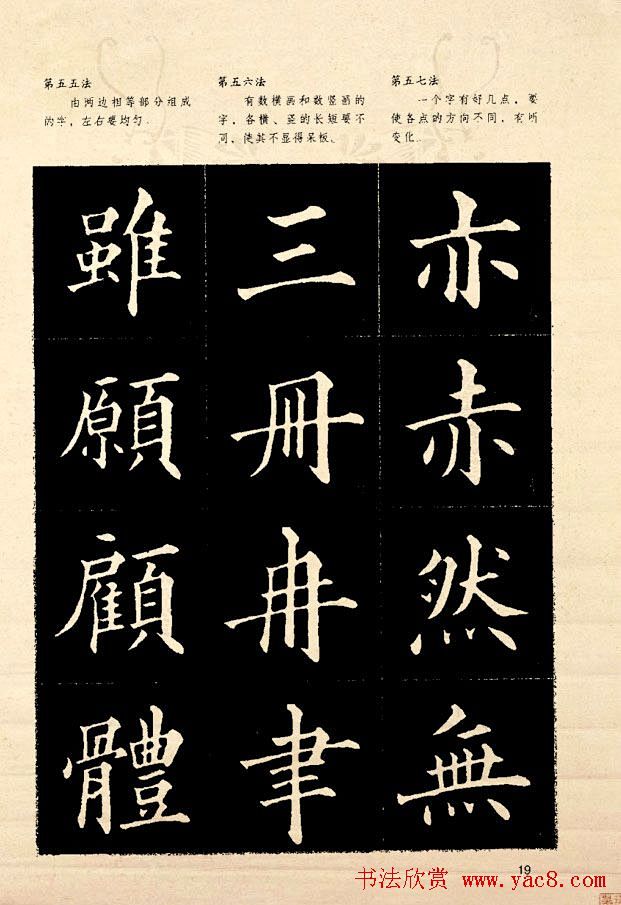 第五五法
由两边相等部分组成
的字，左右要均匀。
第五六法
有数横画和数竖画的
字，各横、竖的长短要不
同，使其不显得呆板。
第五七法
一个字有好几点，要
使各点的方向不同，有所
变化。
雖 三 亦
願 冊 赤
顧 冉 然
體 聿 無
19
书法欣赏 www.yac8.com